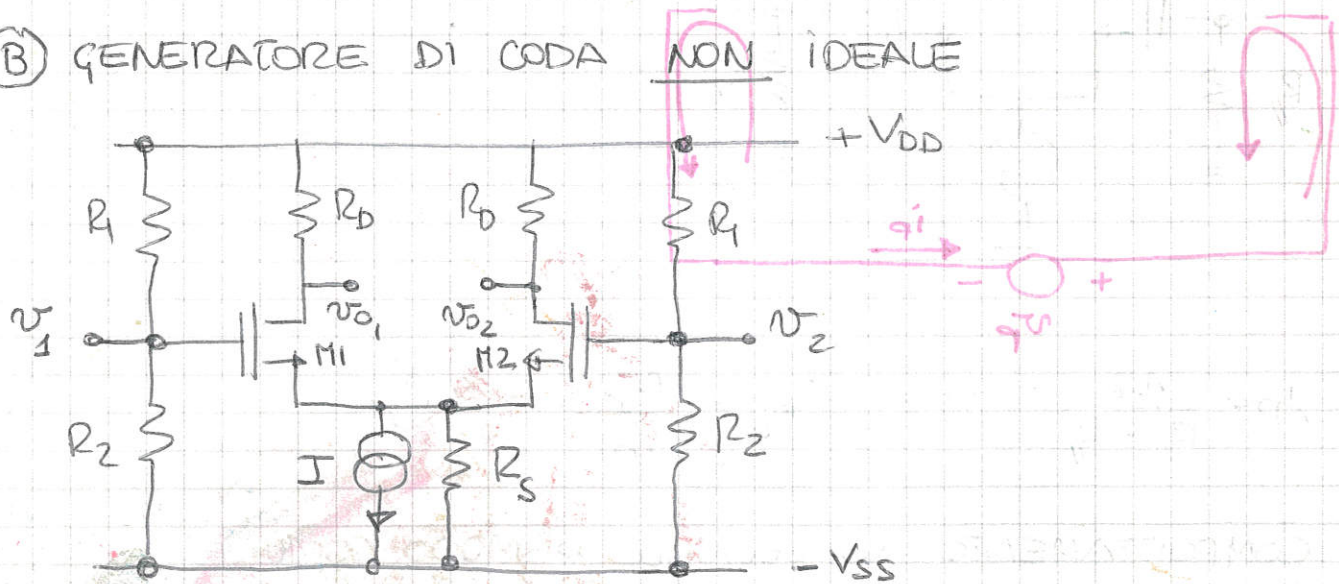 B) GENERATORE DI CODA NON IDEALE
+ VDD
R1
RD
RD
R1
v1
vo1
vo2
v2
M1
M2
R2
I
RS
R2
- VSS
- +